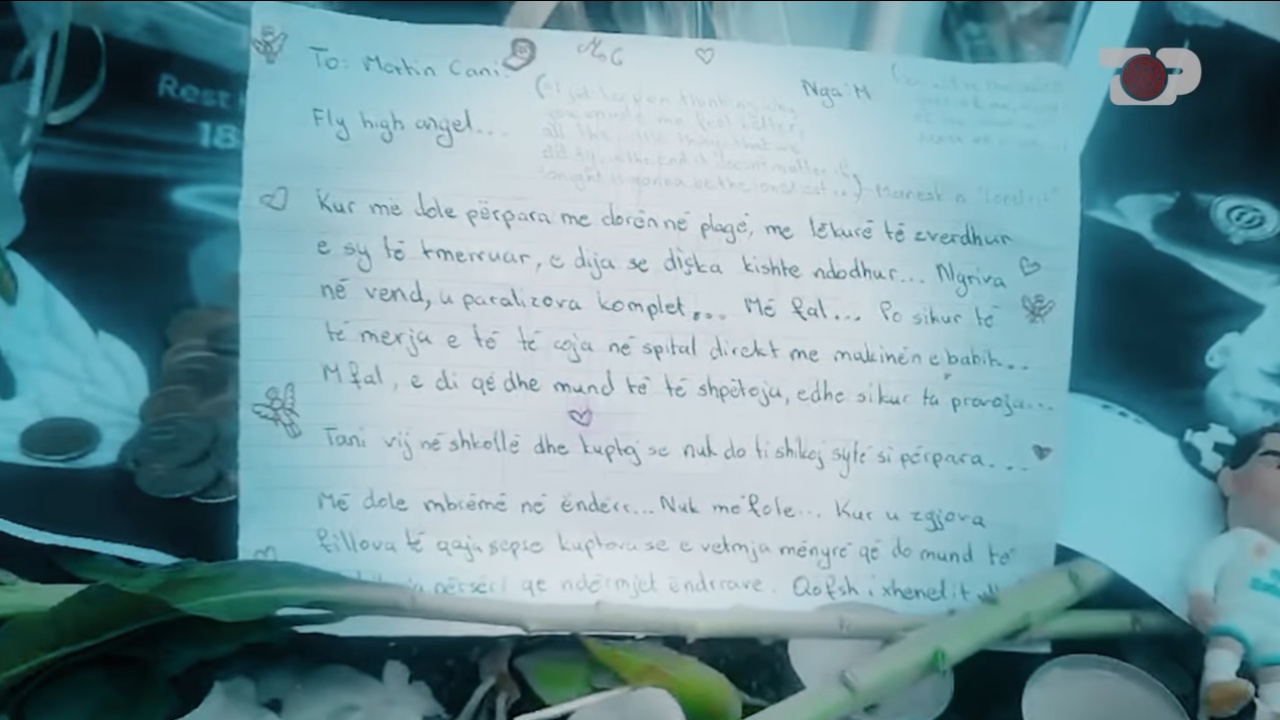 To: Martin Cani
M G
Nga M
Rest
18
Fly high angel....
(I just keep on thinking why
you made me feel better,
all the little thing that we
did
tonight is gonna be the loneliest...) - Maneskin "Loneliest"
Kur më dole përpara me dorën në plagë, me lëkurë të zverdhur
e sy të tmerruar, e dija se diçka kishte ndodhur... Ngriva
në vend, u paralizova komplet... Më fal... Po sikur të
të merrja e të të çoja në spital direkt me makinën e babit...
M fal, e di që dhe mund të të shpëtoja, edhe sikur ta provoja...
Tani vij në shkollë dhe kuptoj se nuk do ti shikoj sytë si përpara....
Më dole mbrëmë në ëndërr... Nuk më fole... Kur u zgjova
fillova të qaja sepse kuptova se e vetmja mënyrë që do mund të
përsëri qe ndërmjet ëndrrave. Qofsh i xhenetit